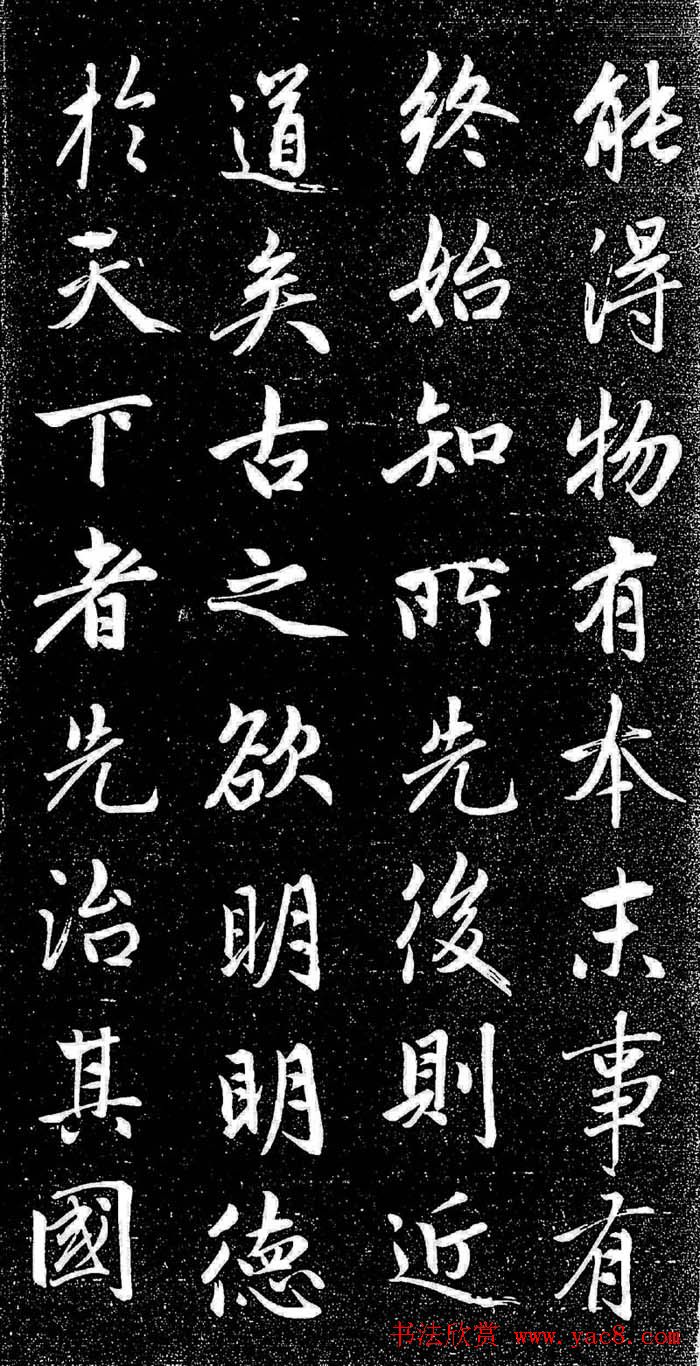 能得物有本末事有
終始知所先後則近
道矣古之欲明明德
於天下者先治其國
书法欣赏 www.yac8.com